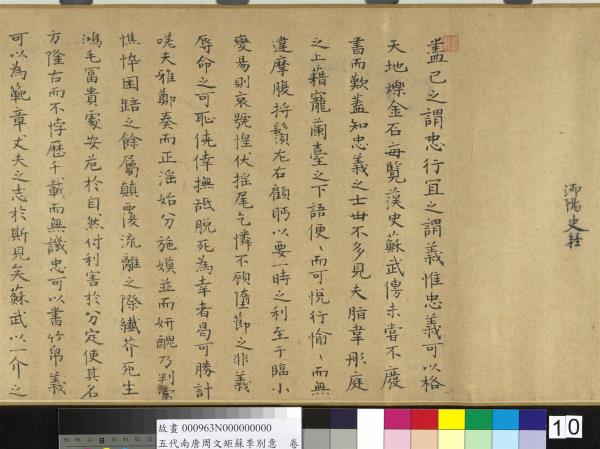 沔陽史経
盡己之謂忠行宜之謂義惟忠義可以格
天地爍金石每覽漢史蘇武傳未嘗不廢
書而歎蓋知忠義之士毋不多見夫脂韋彤庭
之上藉寵蘭臺之下語便〻而可悅行愉〻而無
違摩腹捋鬚左右顧眄以要一時之利至于臨小
變易則哀號惶伏搖尾乞憐不願墮節之非義
辱命之可恥僥倖撫砥脫死為幸者曷可勝計
嗟夫雅鄭奏而正淫始分施嫫並而妍醜乃判
憔悴困踣之餘屬顛覆流離之際纖芥死生
鴻毛冨貴處安危於自然付利害於分定使其名
方隆古而不悖歷千載而無議忠可以書竹帛義
可以為範章丈夫之志於斯見矣蘇武以一介之
故畫 000963N000000000
五代南唐周文矩蘇李別意 卷
10
B